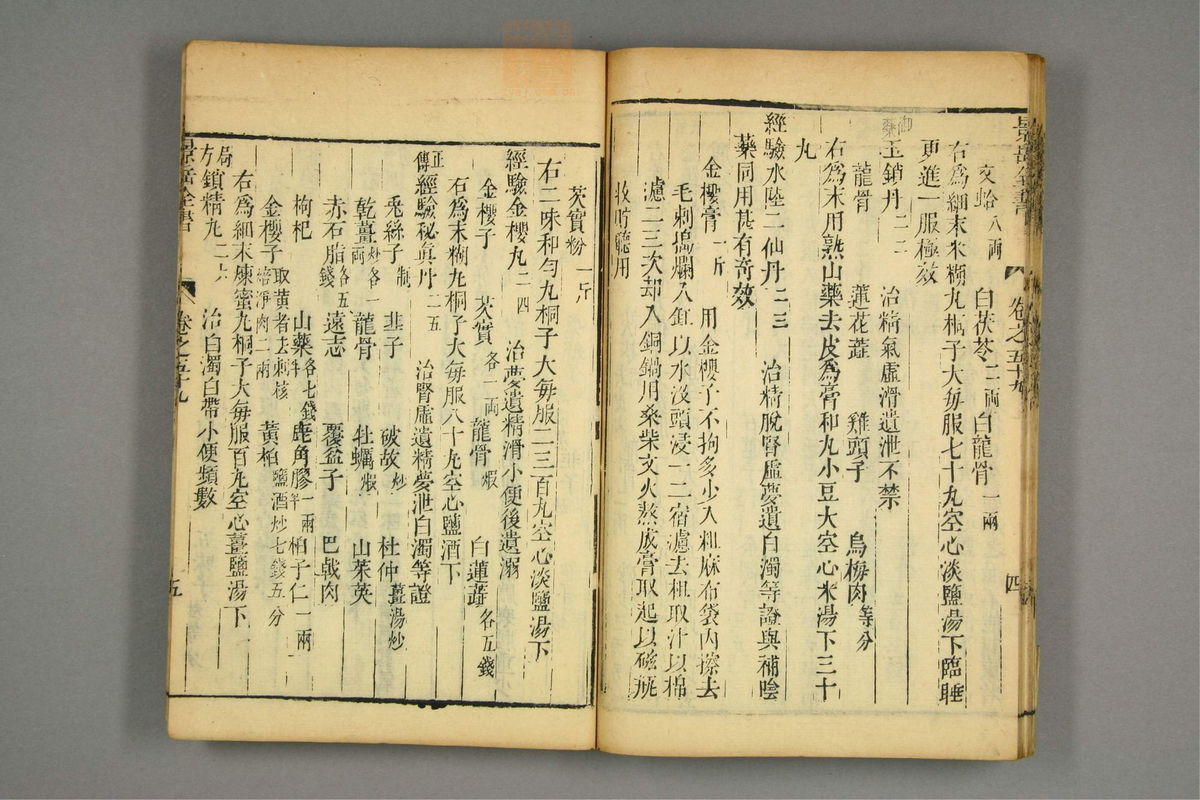 景岳全書 卷之五十九 四
文蛤八兩 白茯苓二兩 白龍骨一兩
右爲細末米糊丸梧子大每服七十丸空心淡鹽湯下臨睡
更進一服極效
御藥玉鎖丹二二 治精氣虛滑遺泄不禁
龍骨 蓮花蕋 雞頭子 烏梅肉等分
右爲末用熟山藥去皮爲膏和丸小豆大空心米湯下三十
丸
經驗水陸二仙丹二三 治精脫腎虛夢遺白濁等證與補陰
藥同用甚有奇效
金櫻膏一斤 用金櫻子不拘多少入粗麻布袋內擦去
毛刺搗爛入缸以水沒頭浸一二宿濾去柤取汁以棉
濾二三次却入銅鍋用桑柴文火熬成膏取起以磁瓶
收貯聽用
芡實粉一斤
右二味和勻丸桐子大每服二三百丸空心淡鹽湯下
經驗金櫻丸二四 治夢遺精滑小便後遺溺
金櫻子 芡實各一兩 龍骨煆 白蓮蕋各五錢
右爲末糊丸桐子大每服八十丸空心鹽酒下
正傳經驗秘眞丹二五 治腎虛遺精夢泄白濁等證
兎絲子制 韭子 破故炒 杜仲薑湯炒
乾薑炒各一兩 龍骨 牡蠣煆 山茱萸
赤石脂各五錢 遠志 覆盆子 巴戟肉
枸杞 山藥各七錢半 鹿角膠一兩半 柏子仁一兩
金櫻子取黃者去刺核焙淨肉二兩 黃柏鹽酒炒七錢五分
右爲細末煉蜜丸桐子大每服百丸空心薑鹽湯下
局方鎖精丸二六 治白濁白帶小便頻數
景岳全書 卷之五十九 五